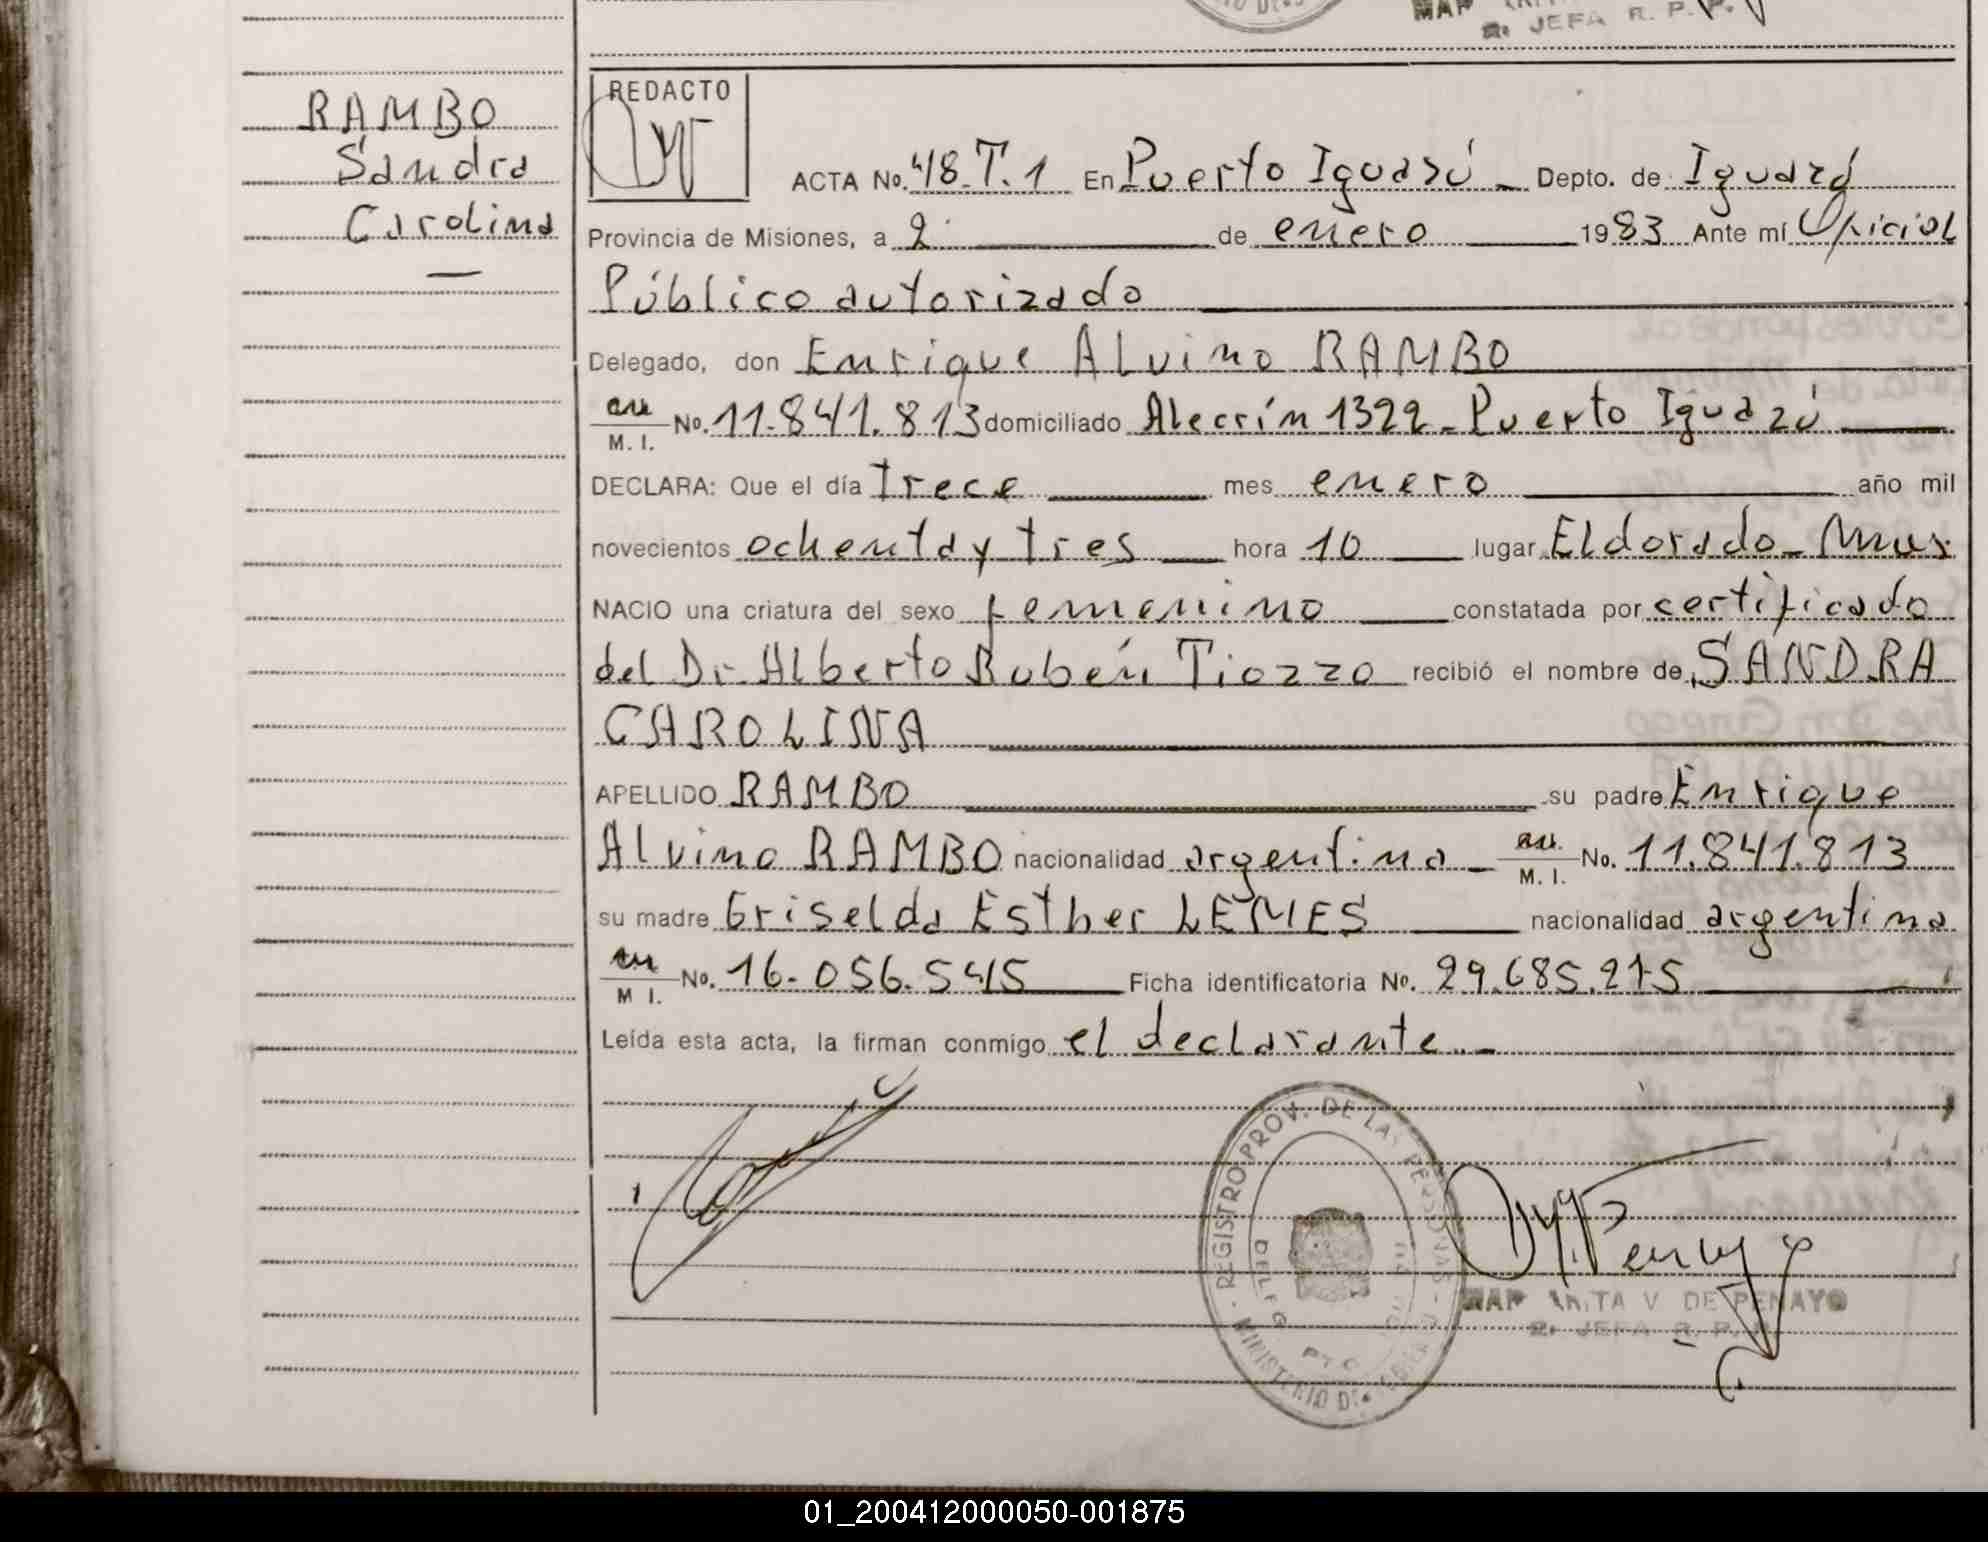 JEFA R. P. P.
REDACTO
RAMBO
Sandra
Carolina
ACTA No. 48.T.1 En Puerto Iguazú _ Depto. de Iguazú
Provincia de Misiones, a 2 de enero 1983 Ante mí Oficial
Público autorizado
Delegado, don Enrique Alvino RAMBO
M. I. No. 11.841.813 domiciliado Alecrín 1322 - Puerto Iguazú
DECLARA: Que el día Trece mes enero año mil
novecientos ochenta y tres hora 10 lugar Eldorado -
NACIO una criatura del sexo femenino constatada por certificado
del Dr. Alberto Rubén Tiozzo recibió el nombre de SANDRA
CAROLINA
APELLIDO RAMBO su padre Enrique
Alvino RAMBO nacionalidad argentina - M. I. No. 11.841.813
su madre Griselda Esther LEMES nacionalidad argentina
M I. No. 16.056.545 Ficha identificatoria No. 29.685.215
Leída esta acta, la firman conmigo el declarante._
REGISTRO PROV. DE LAS PERSONAS
MINISTERIO DE
DELEG
PTO
TA V DE PENAYO
JEFA R. P.
01_200412000050-001875